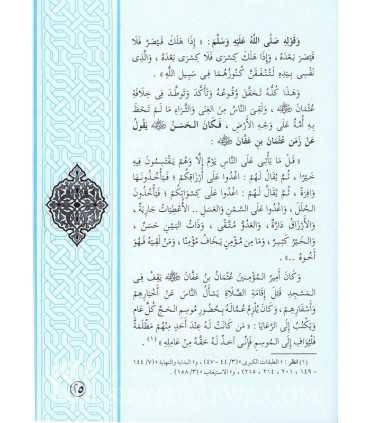 وَقَوْلِهِ صَلَّى اللهُ عَلَيْهِ وَسَلَّمَ : « إِذَا هَلَكَ قَيْصَرُ فَلَا
قَيْصَرَ بَعْدَهُ ، وَإِذَا هَلَكَ كِسْرَى فَلَا كِسْرَى بَعْدَهُ ، وَالَّذِي
نَفْسِي بِيَدِهِ لَتُنْفَقَنَّ كُنُوزُهُمَا فِي سَبِيلِ اللَّهِ » .
وَهَذَا كُلُّهُ تَحَقَّقَ وُقُوعُهُ وَتَأَكَّدَ وَتَوَطَّدَ فِي خِلَافَةِ
عُثْمَانَ ﷺ ، وَلَقِيَ النَّاسُ مِنَ الغِنَى وَالثَّرَاءِ مَا لَمْ تَحْظَ
بِهِ أُمَّةٌ عَلَى وَجْهِ الأَرْضِ ، فَكَانَ الحَسَنُ يَقُولُ
عَنْ زَمَنِ عُثْمَانَ بنِ عَفَّانَ :
« قَلَّ مَا يَأْتِي عَلَى النَّاسِ يَوْمٌ إِلَّا وَهُمْ يَقْتَسِمُونَ فِيهِ
خَيْرًا ، ثُمَّ يُقَالُ لَهُمْ : اغْدُوا عَلَى أَرْزَاقِكُمْ ، فَيَأْخُذُونَهَا
وَافِرَةً ، ثُمَّ يُقَالُ لَهُمْ : اغْدُوا عَلَى كِسْوَتِكُمْ ، فَيَأْخُذُونَ
الحُلَلَ ، وَاغْدُوا عَلَى السَّمْنِ وَالعَسَلِ .. الأُعْطِيَاتُ جَارِيَةٌ ،
وَالأَرْزَاقُ دَارَّةٌ ، وَالعَدُوُّ مُتَّقًى ، وَذَاتُ البَيْنِ حَسَنٌ ،
وَالخَيْرُ كَثِيرٌ ، وَمَا مِنْ مُؤْمِنٍ يَخَافُ مُؤْمِنًا ، وَمَنْ لَقِيَهُ فَهُوَ
أَخُوهُ .. » .
وَكَانَ أَمِيرُ المُؤْمِنِينَ عُثْمَانُ بنُ عَفَّانَ يَقِفُ فِي
المَسْجِدِ قَبْلَ إِقَامَةِ الصَّلَاةِ يَسْأَلُ النَّاسَ عَنْ أَخْبَارِهِمْ
وَأَسْفَارِهِمْ ، وَكَانَ يُلْزِمُ عُمَّالَهُ بِحُضُورِ مَوْسِمِ الحَجِّ كُلَّ عَامٍ
وَيَكْتُبُ إِلَى الرَّعَايَا : « مَنْ كَانَتْ لَهُ عِنْدَ أَحَدٍ مِنْهُمْ مَظْلَمَةٌ
فَلْيُوَافِ إِلَى المَوْسِمِ فَإِنِّي آخُذُ لَهُ حَقَّهُ مِنْ عَامِلِهِ » (١) .
(١) انظر : « الطبقات الكبرى » (٣/ ٤٤ - ٤٧) ، و« البداية والنهاية » (٧/ ١٤٤
- ١٤٩ ، ٢٠١ ، ٢١٤ ، ٢١٥) ، و« الاستيعاب » (٣/ ١٥٨) .
٢٥